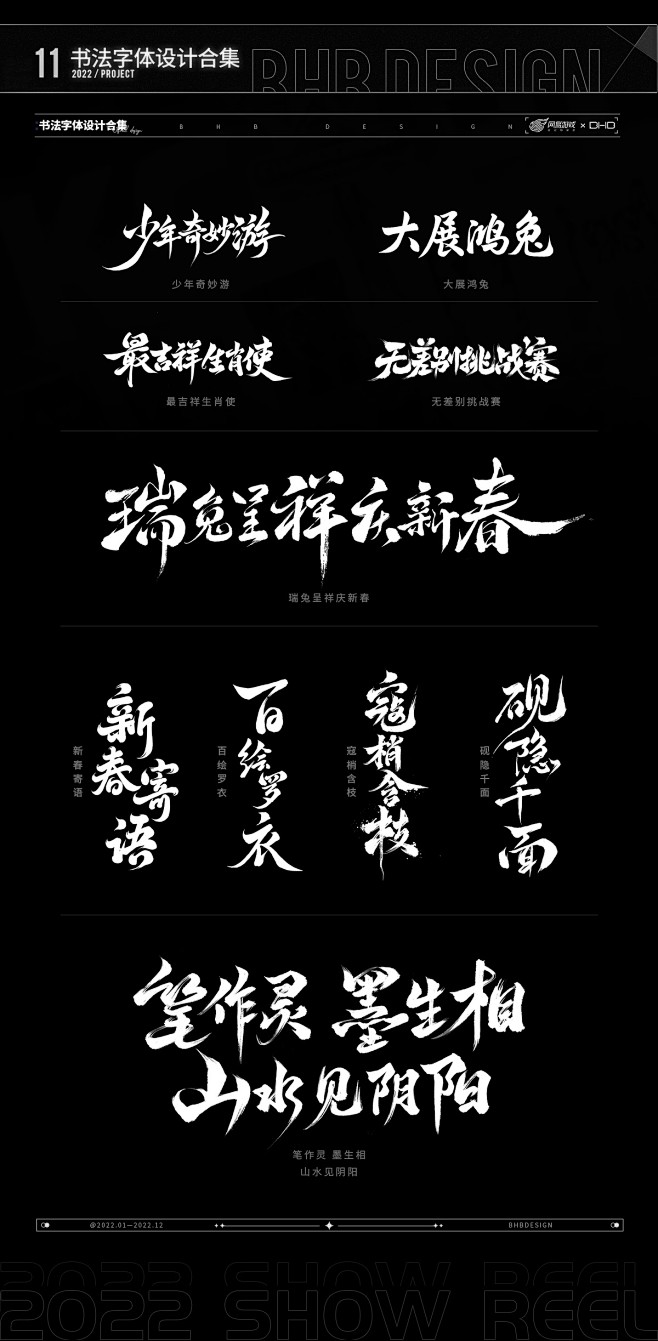 11 书法字体设计合集
2022 / PROJECT
BHB DESIGN
书法字体设计合集
BHB DESIGN
网易游戏 × DHD
少年奇妙游
大展鸿兔
少年奇妙游
大展鸿兔
最吉祥生肖使
无差别挑战赛
最吉祥生肖使
无差别挑战赛
瑞兔呈祥庆新春
瑞兔呈祥庆新春
新春寄语
新春寄语
百绘罗衣
百绘罗衣
寇梢含枝
寇梢含枝
砚隐千面
砚隐千面
笔作灵 墨生相
山水见阴阳
笔作灵 墨生相
山水见阴阳
@2022.01—2022.12
BHBDESIGN
2022 SHOW REEL
2022 SHOW REEL